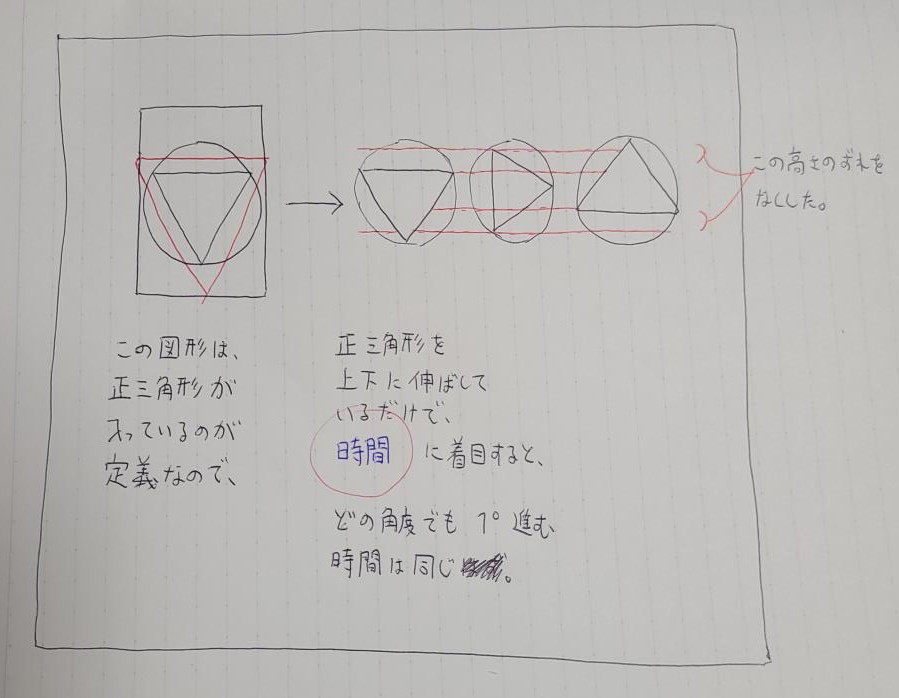 この高さのずれを
なくした。
この図形は、
正三角形が
入っているのが
定義なので、
正三角形を
上下に伸ばして
いるだけで、
時間に着目すると、
どの角度でも1°進む
時間は同じ。